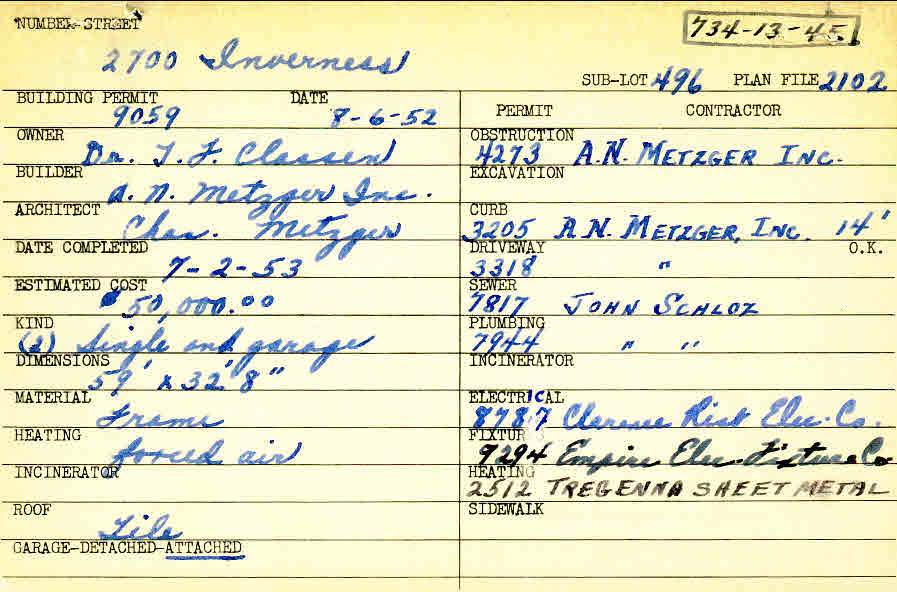 NUMBER-STREET
734-13-45
2700 Inverness
SUB-LOT 496 PLAN FILE 2102
BUILDING PERMIT DATE
9059 8-6-52
PERMIT CONTRACTOR
OWNER
Dr. T. F. Classen
OBSTRUCTION
4273 A.N. METZGER INC.
BUILDER
A. N. Metzger Inc.
EXCAVATION
ARCHITECT
Chas. Metzger
CURB
3205 A.N. METZGER, INC. 14'
DATE COMPLETED
7-2-53
DRIVEWAY O.K.
3318 "
ESTIMATED COST
$50,000.00
SEWER
7817 JOHN SCHLOZ
KIND
(2) Single and garage
PLUMBING
7944 " "
DIMENSIONS
59' x 32' 8"
INCINERATOR
MATERIAL
Frame
ELECTRICAL
8787 Clarence Rist Elec. Co.
HEATING
forced air
FIXTUR
9294 Empire Elec. Fixture Co
INCINERATOR
HEATING
2512 TREGENNA SHEET METAL
ROOF
Tile
SIDEWALK
GARAGE-DETACHED-ATTACHED